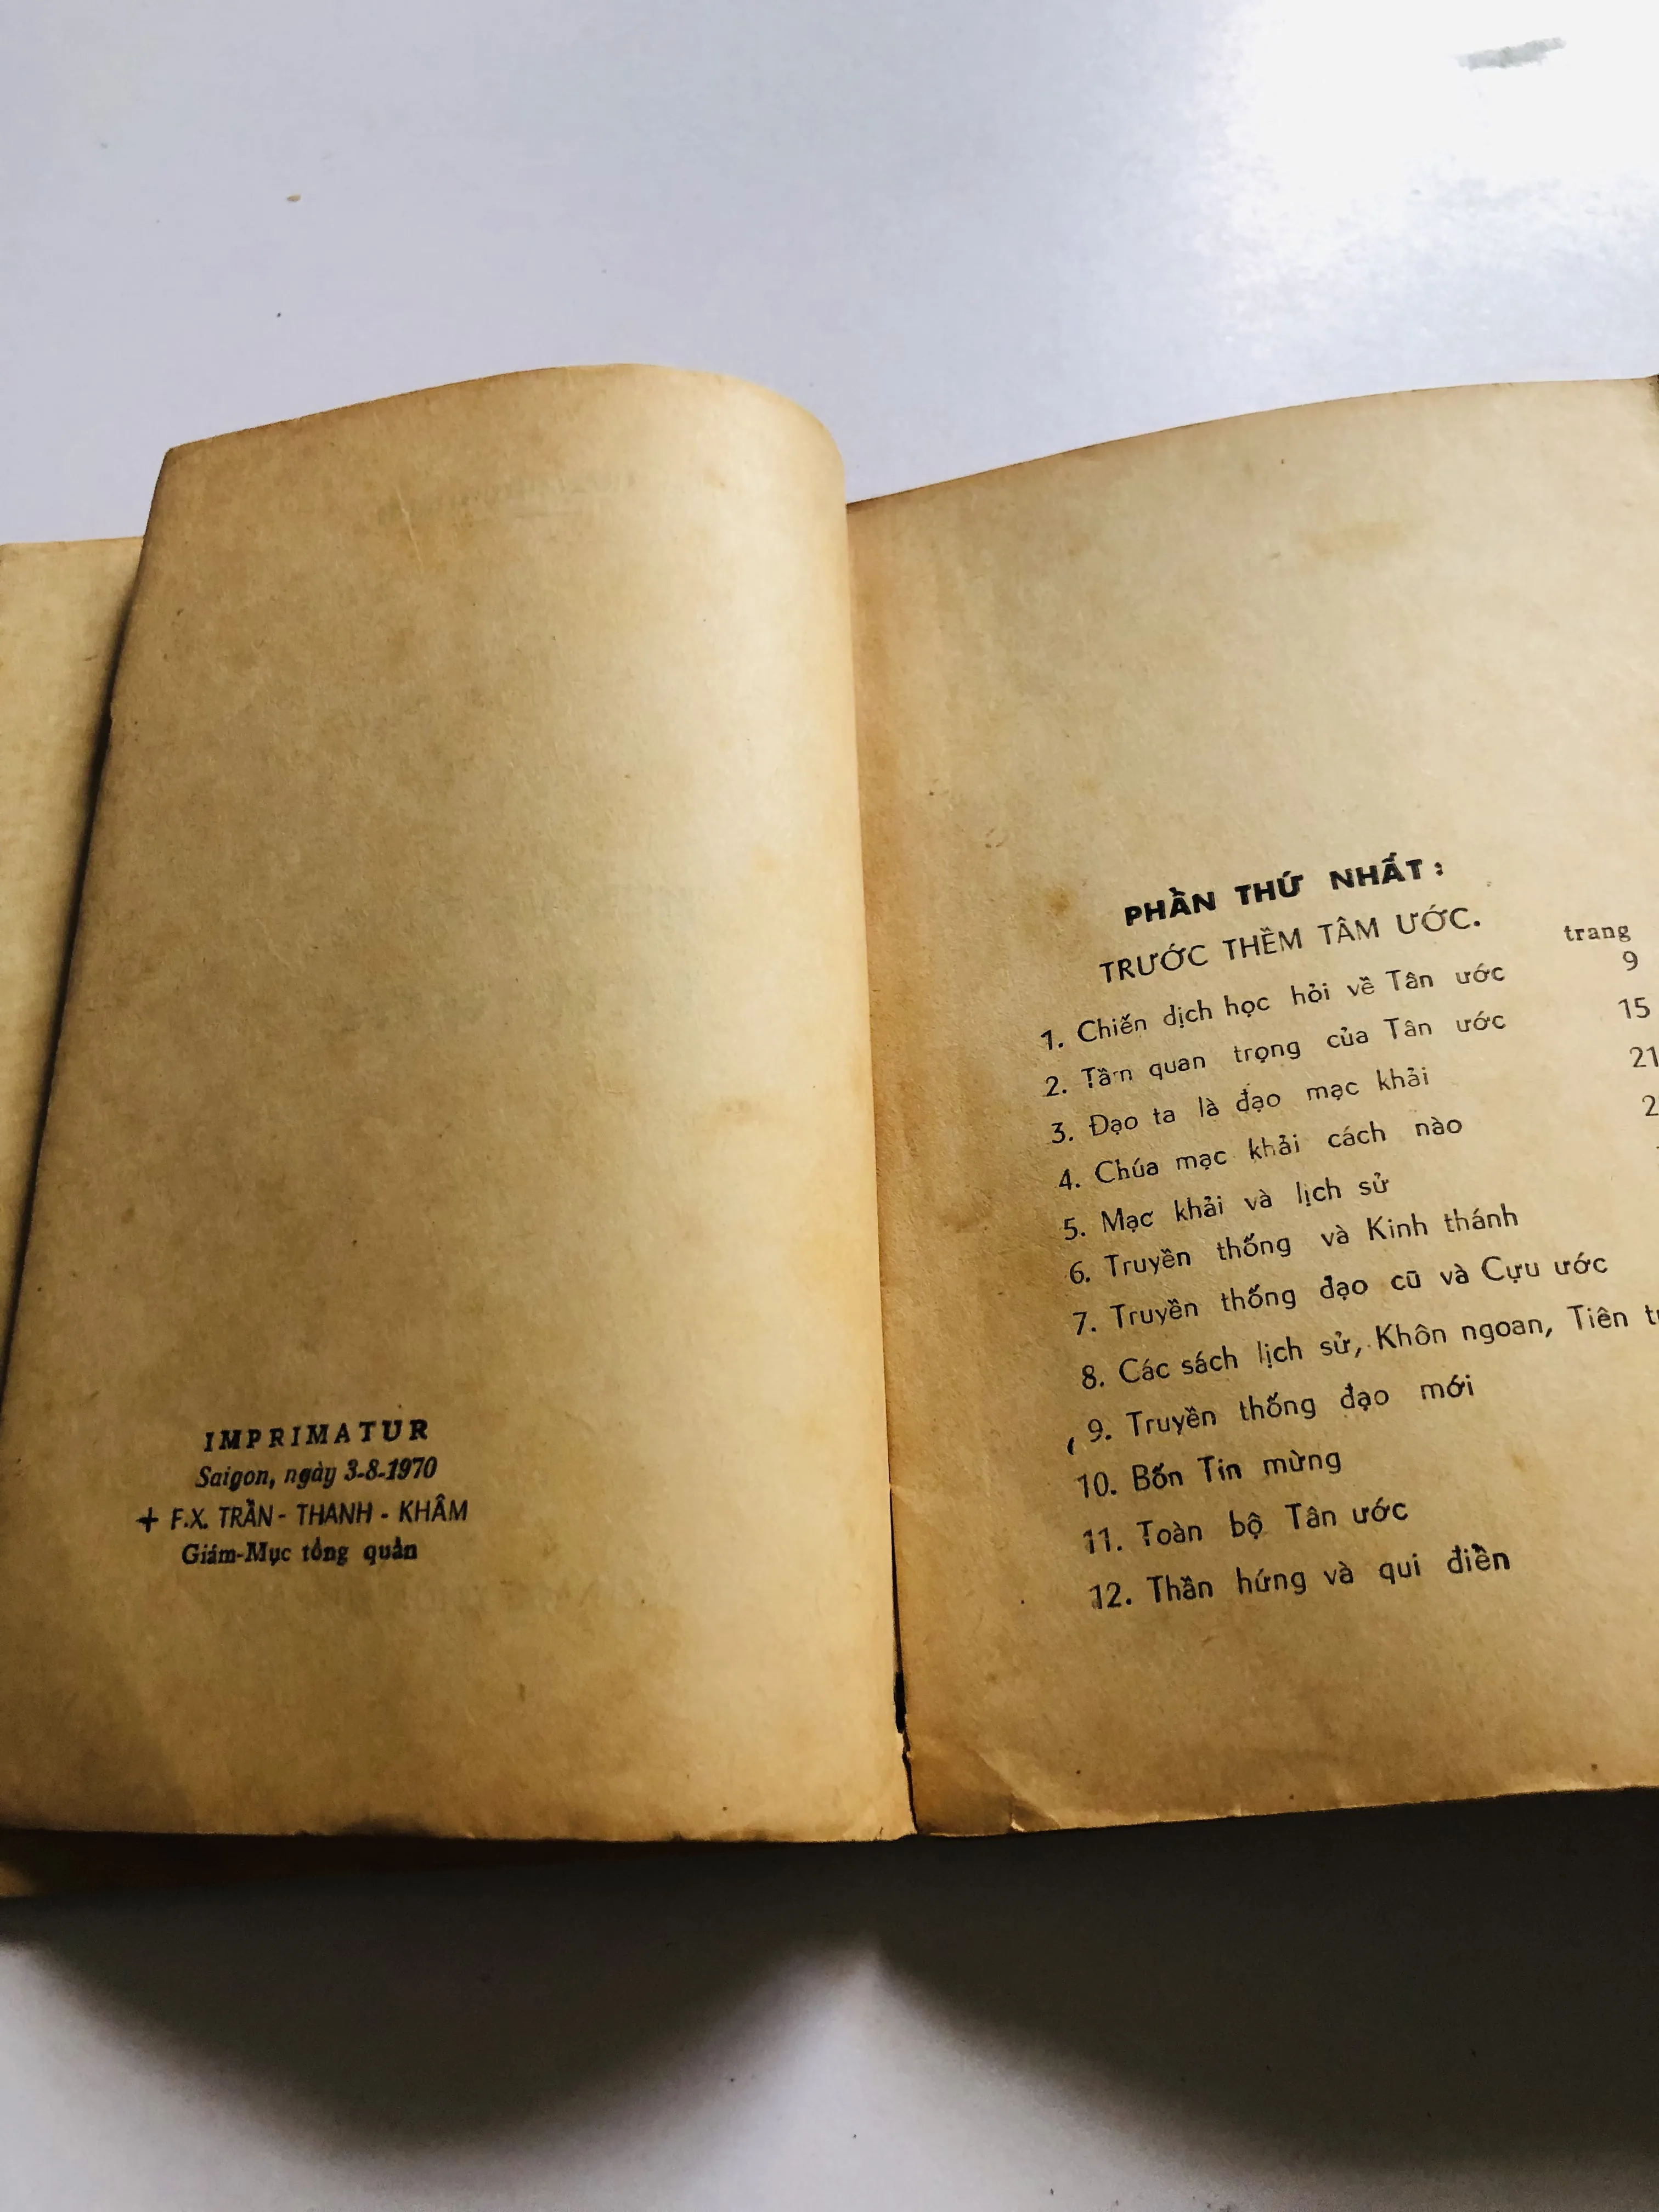 IMPRIMATUR
Saigon, ngày 3-8-1970
+ F.X. TRẦN - THANH - KHÂM
Giám-Mục tổng quản
PHẦN THỨ NHẤT :
TRƯỚC THỀM TÂM ƯỚC.
trang
1. Chiến dịch học hỏi về Tân ước 9
2. Tầm quan trọng của Tân ước 15
3. Đạo ta là đạo mạc khải 21
4. Chúa mạc khải cách nào 2
5. Mạc khải và lịch sử
6. Truyền thống và Kinh thánh
7. Truyền thống đạo cũ và Cựu ước
8. Các sách lịch sử, Khôn ngoan, Tiên
9. Truyền thống đạo mới
10. Bốn Tin mừng
11. Toàn bộ Tân ước
12. Thần hứng và qui điền